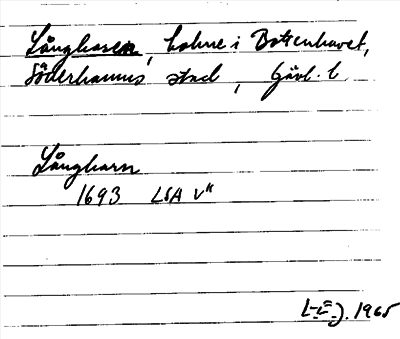 Långhasen, holme i Bottenhavet,
Söderhamns stad, Gävl. l
Långharn
1693 LSA V"
1965